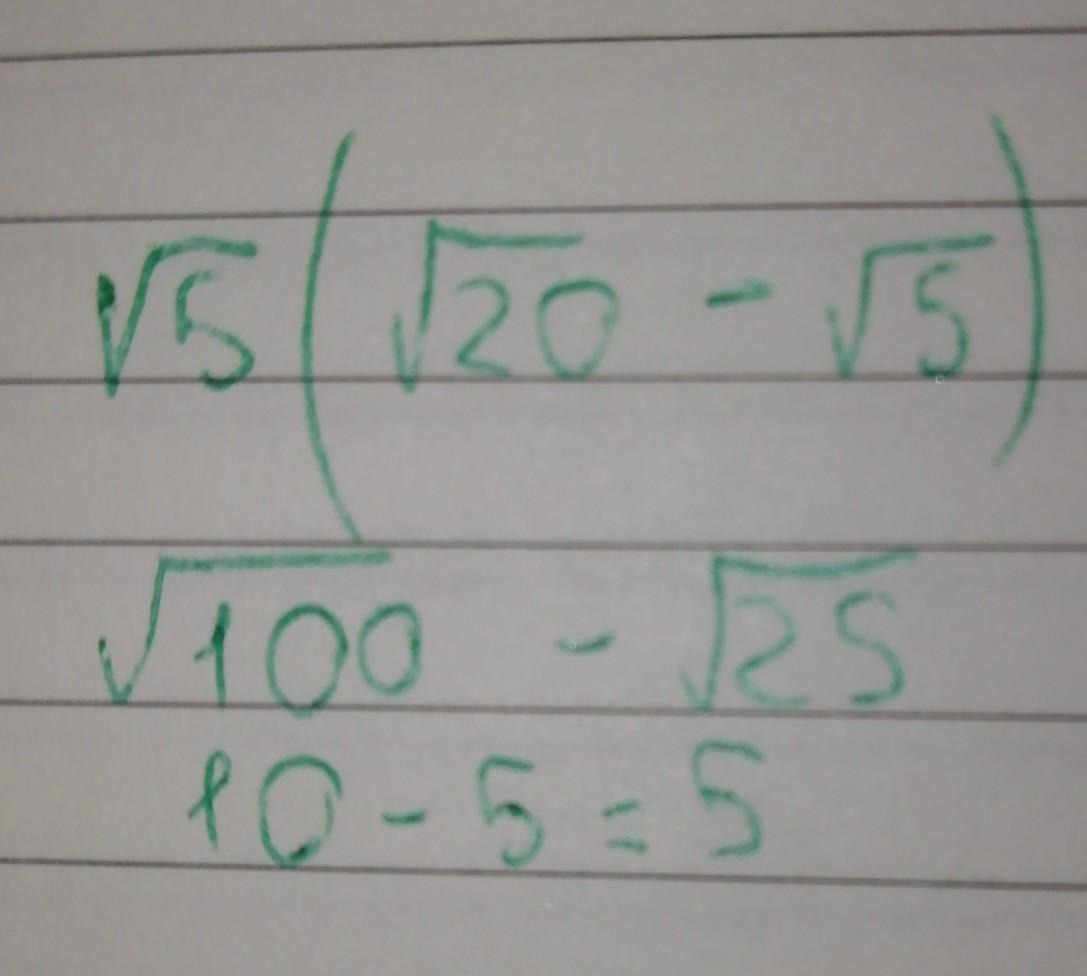 √5(√20 - √5)
√100 - √25
10 - 5 = 5